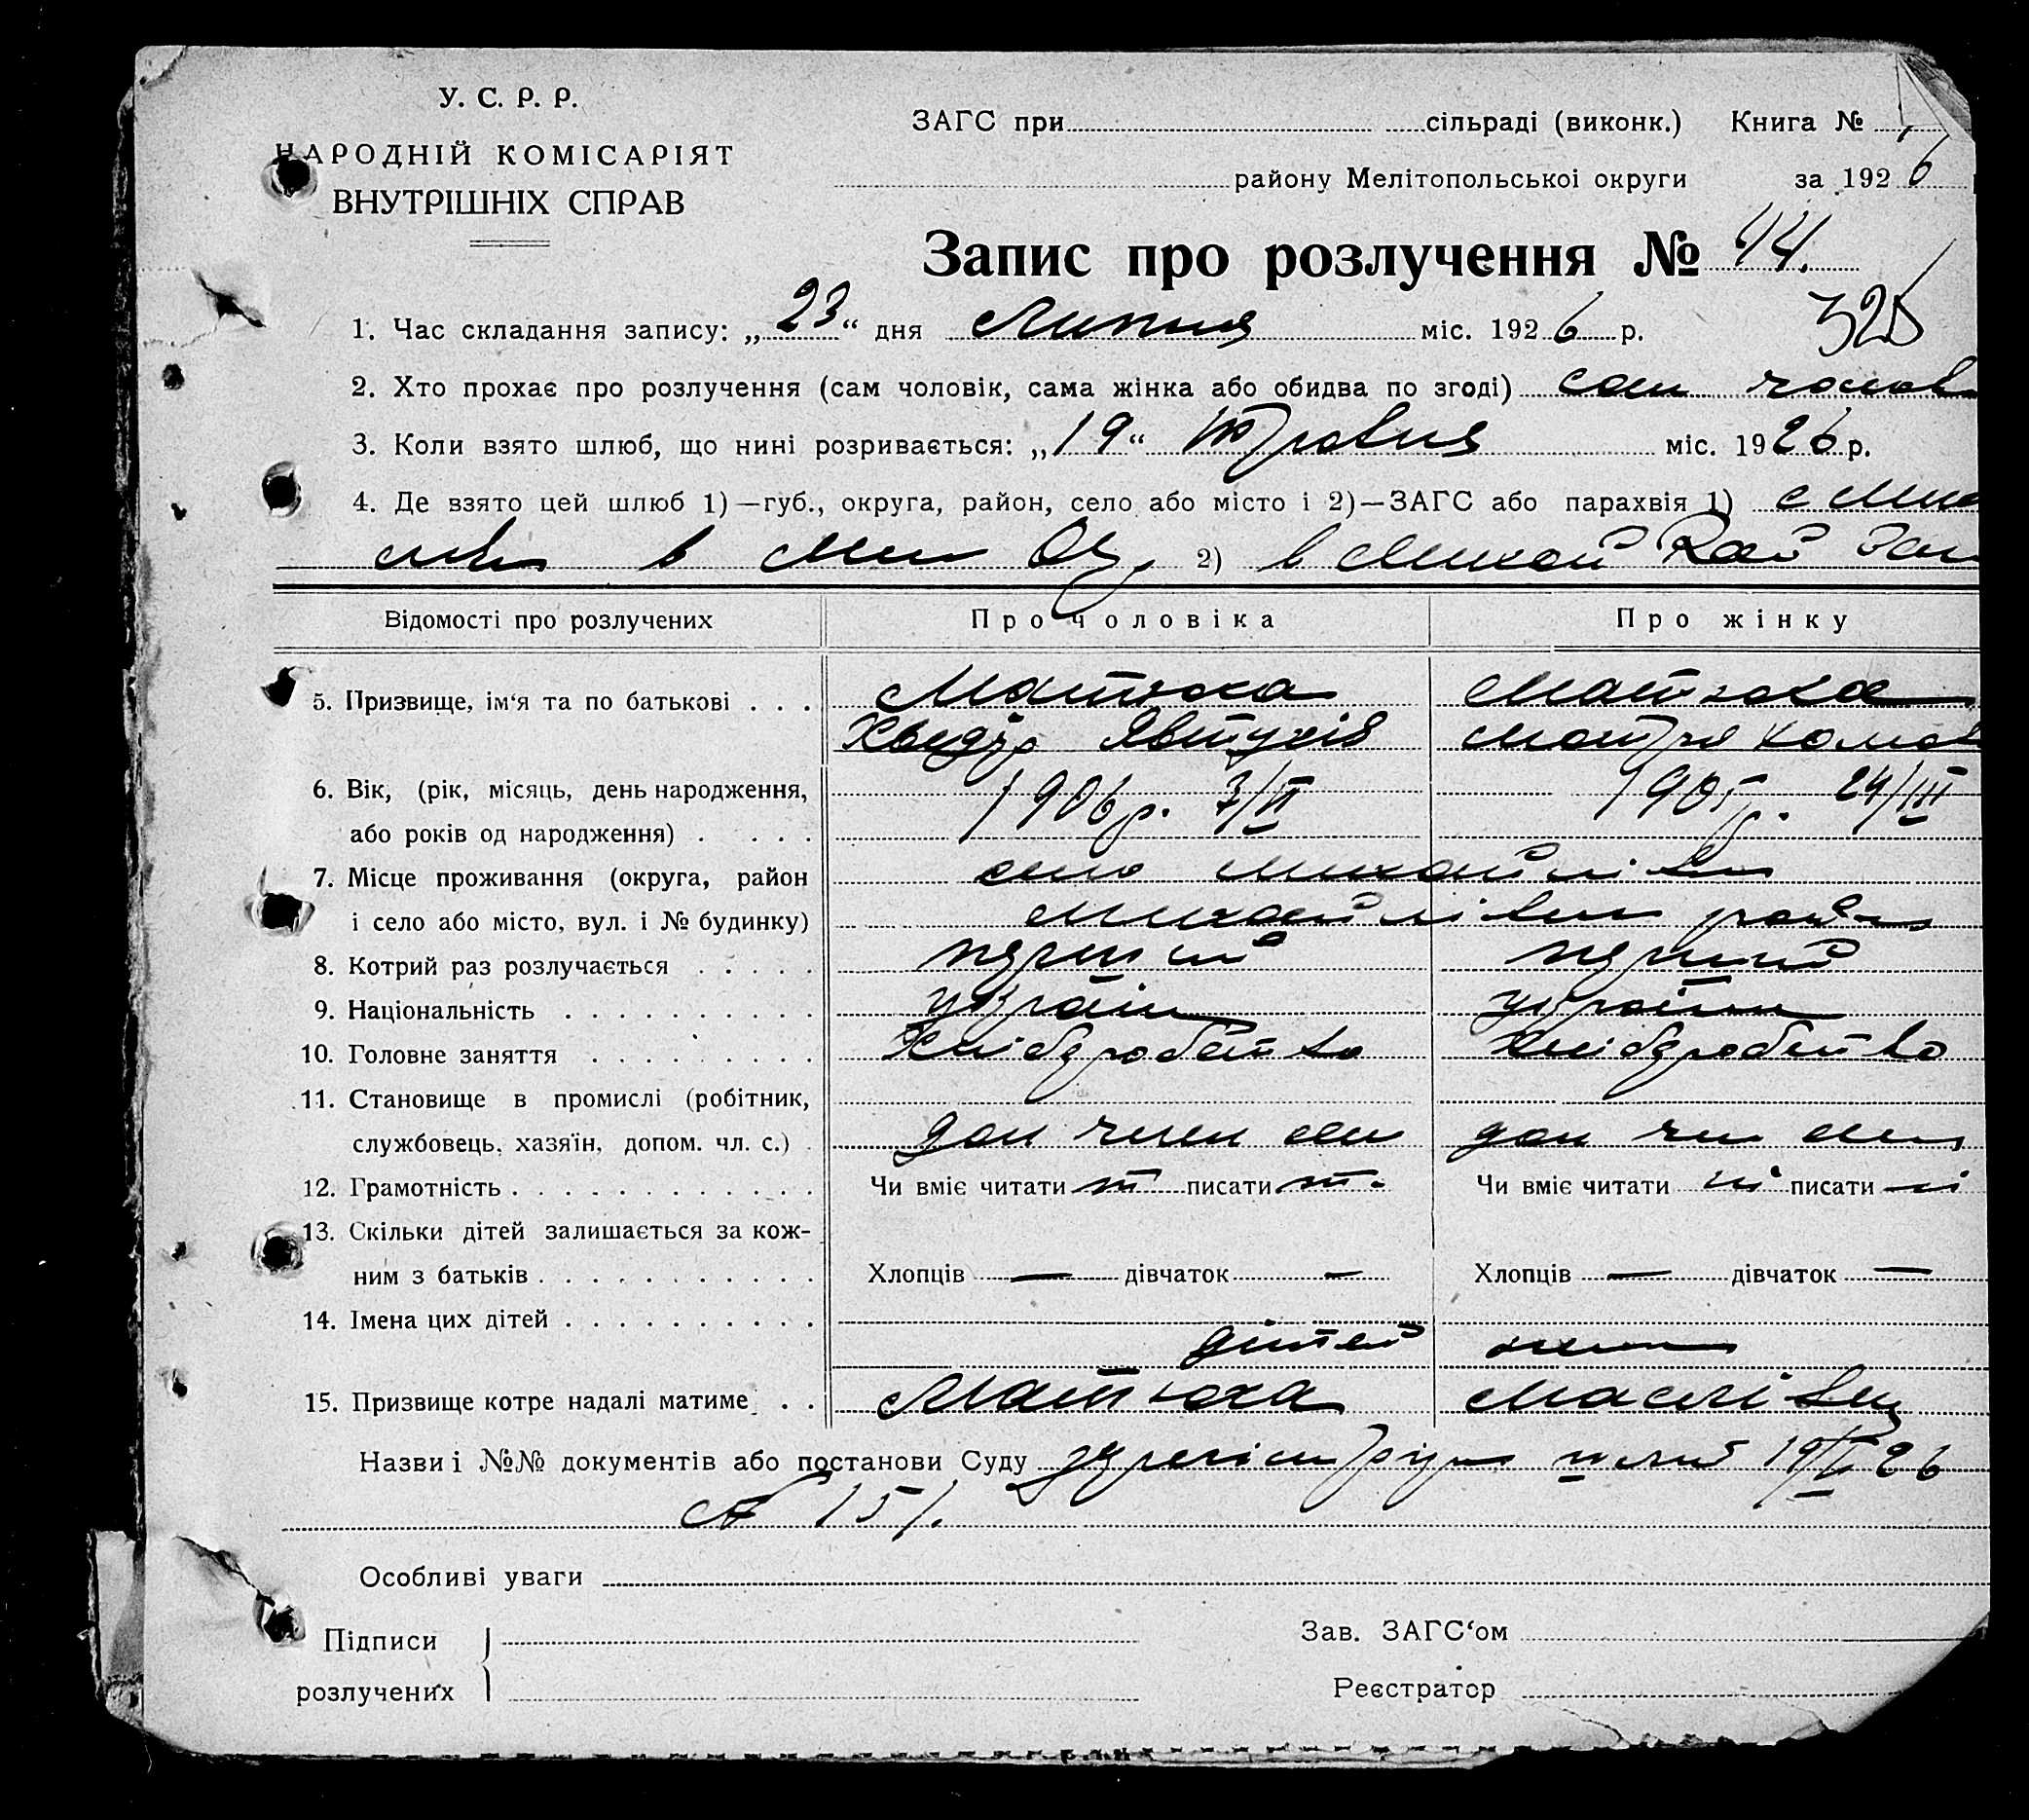 У. С. Р. Р.
НАРОДНІЙ КОМІСАРІЯТ
ВНУТРІШНІХ СПРАВ
ЗАГС при сільраді (виконк.) Книга №
району Мелітопольської округи за 1926
Запис про розлучення № 44.
325
1. Час складання запису: „23“ дня Липня міс. 1926 р.
2. Хто прохає про розлучення (сам чоловік, сама жінка або обидва по згоді) сам чолов
3. Коли взято шлюб, що нині розривається: „19“ Травня міс. 1926 р.
4. Де взято цей шлюб 1)—губ., округа, район, село або місто і 2)—ЗАГС або парахвія 1) с
в 2) в
Відомості про розлучених Про чоловіка Про жінку
5. Призвище, ім‘я та по батькові . . . Матюха Матюха
Хведір Явтухів Мотря
6. Вік, (рік, місяць, день народження, 1906 р. 1905 р. 24/III
або років од народження) . . . .
7. Місце проживання (округа, район село Михайлівка
і село або місто, вул. і № будинку) Михайлівськ район
8. Котрий раз розлучається . . . . . перший перший
9. Національність . . . . . . . . . . україн україн
10. Головне заняття . . . . . . . . . Хліборобство Хліборобство
11. Становище в промислі (робітник,
службовець, хазяїн, допом. чл. с.) . доп член сем доп чл сем
12. Грамотність . . . . . . . . . . . . Чи вміє читати т писати т. Чи вміє читати ні писати ні
13. Скільки дітей залишається за кож-
ним з батьків . . . . . . . . . . . Хлопців — дівчаток — Хлопців — дівчаток —
14. Імена цих дітей . . . . . . . . . .
дітей нема
15. Призвище котре надалі матиме . . Матюха
Назви і №№ документів або постанови Суду 19/V 26
№ 151.
Особливі уваги
Підписи
розлучених
Зав. ЗАГС‘ом
Реєстратор